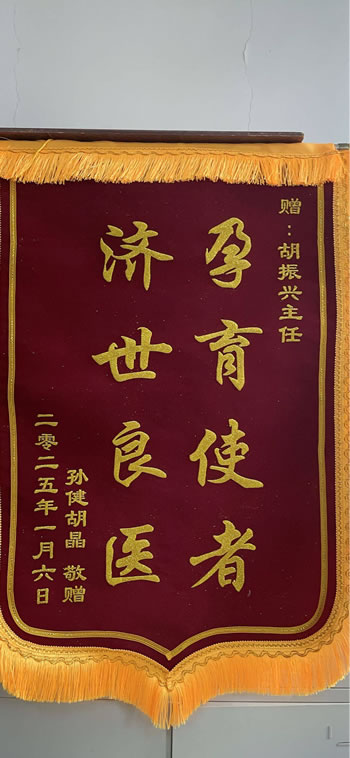 赠：胡振兴主任
孕育使者
济世良医
孙健胡晶 敬赠
二零二五年一月六日